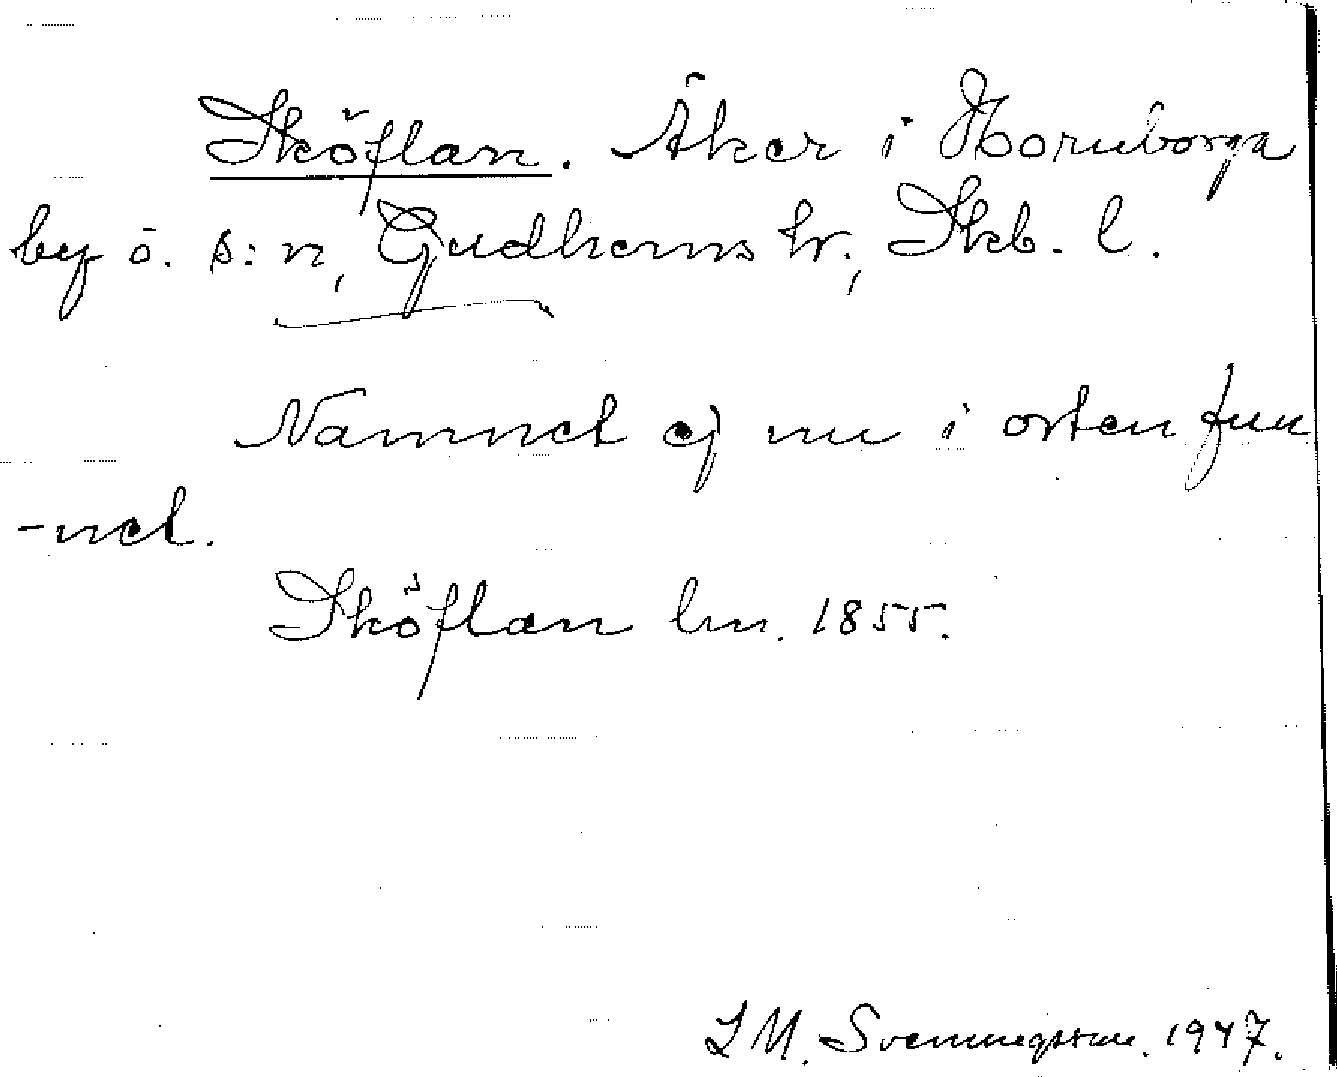 Sköflan. Åker i Hornborga
by o. s:n, Gudhems hr., Skb. l.
Namnet ej nu i orten fun
-net.
Sköflan lm. 1855.
L M. Svenungsson. 1947.